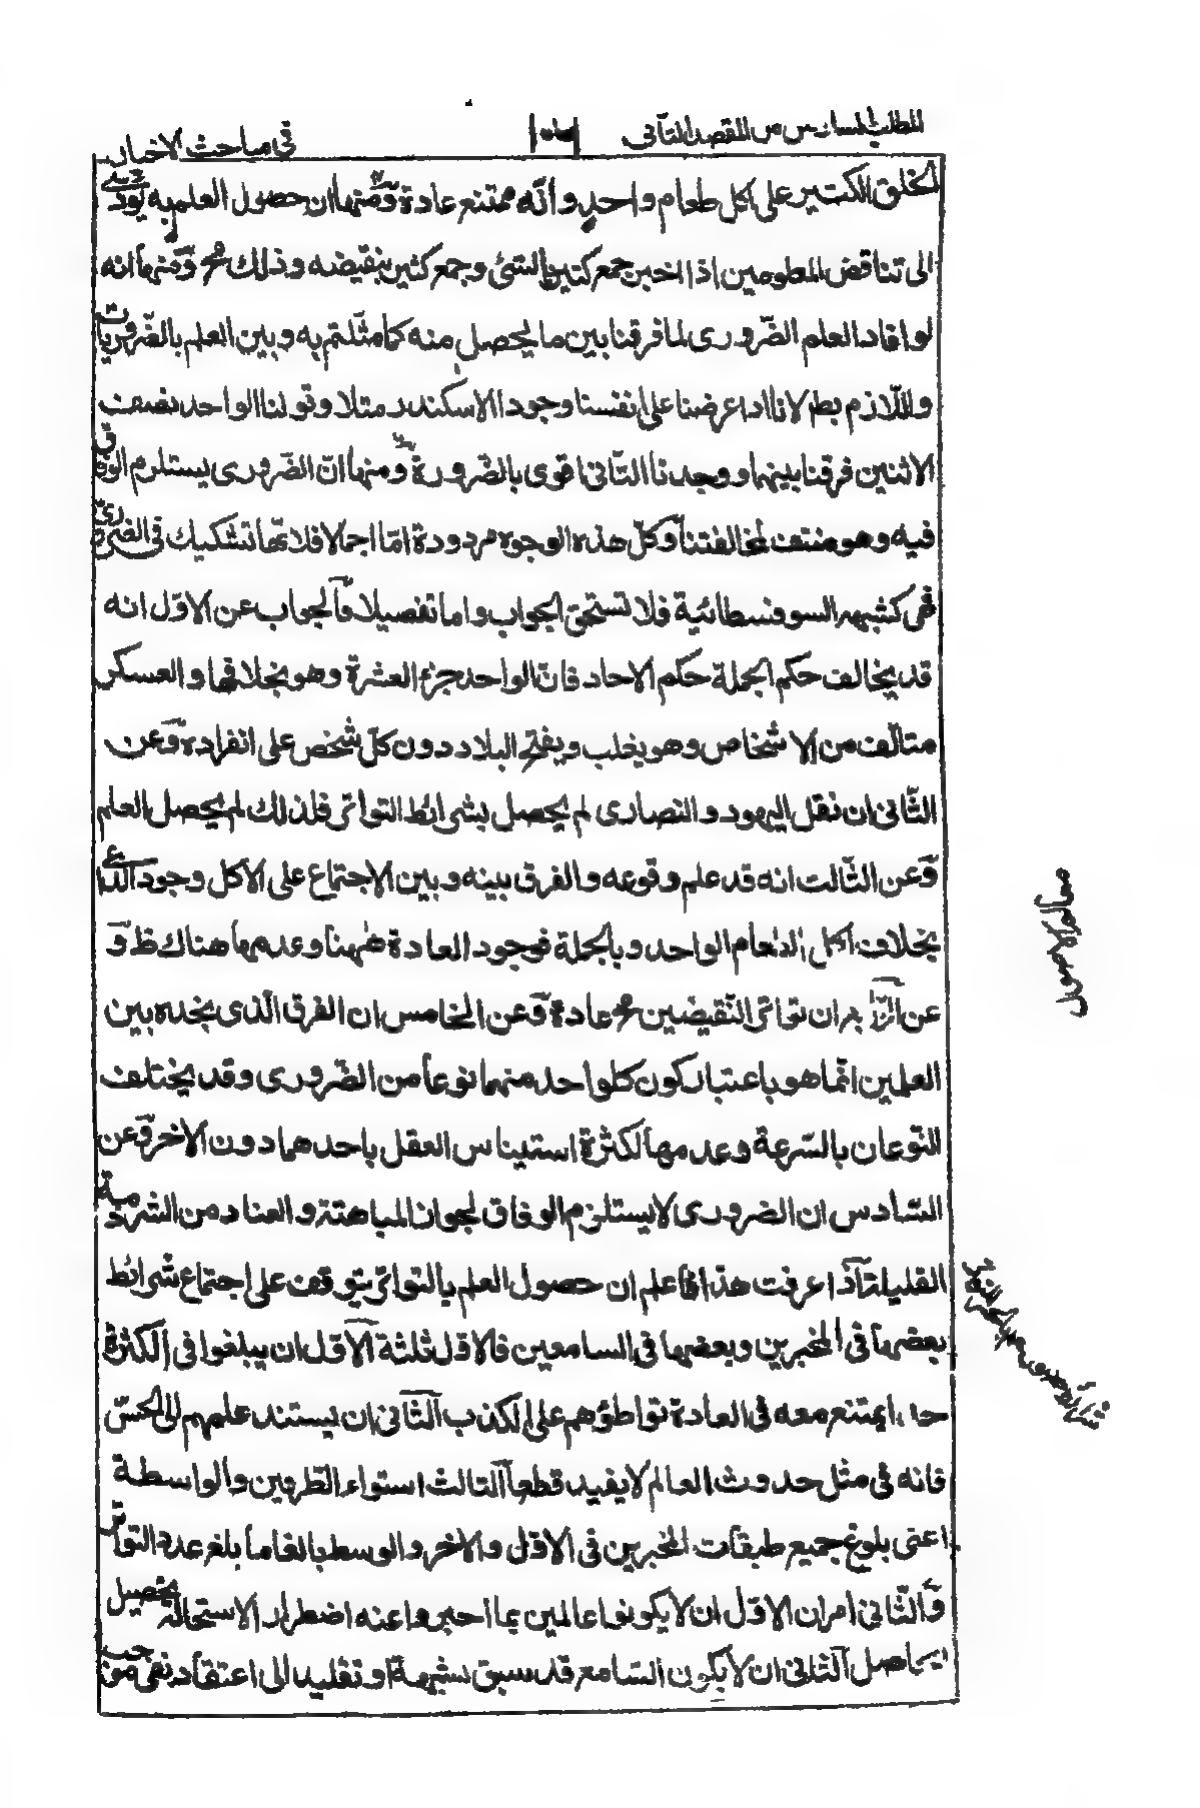 المطلب السادس من المقصد الثانى
فى مباحث الاخبار
الخلق الكثير على اكل طعام واحد وانّه ممتنع عادة ومنها ان حصول العلم به يؤدى
الى تناقض المعلومين اذا اخبر جمع كثير بالشئ وجمع كثير بنقيضه وذلك مح ومنها انه
لو افاد العلم الضّرورى لما فرقنا بين ما يحصل منه كما مثّلتم به وبين العلم بالضّروريات
واللّازم بط لانا اذا عرضنا على انفسنا وجود الاسكندر مثلا وقولنا الواحد نصف
الاثنين فرقنا بينهما ووجدنا الثّانى اقوى بالضّرورة ومنها انّ الضّرورى يستلزم الوفاق
فيه وهو منتف لمخالفتنا وكلّ هذه الوجوه مردودة امّا اجمالا فلانّها تشكيك فى الضّرورى
فهى كشبهه السوفسطائية فلا تستحق الجواب واما تفصيلا فالجواب عن الاوّل انه
قد يخالف حكم الجملة حكم الاحاد فانّ الواحد جزء العشرة وهو بخلافها والعسكر
متالّف من الاشخاص وهو يغلب ويفتح البلاد دون كلّ شخص على انفراده وعن
الثّانى ان نقل اليهود والنصارى لم يحصل بشرائط التواتر فلذلك لم يحصل العلم
وعن الثّالث انه قد علم وقوعه والفرق بينه وبين الاجتماع على الاكل وجود الداعى
بخلاف اكل الطعام الواحد وبالجملة فوجود العادة ههنا وعدمها هناك ظ و
عن الرّابع ان تواتر النّقيضين مح عادة وعن الخامس ان الفرق الّذى يجده بين
العلمين انّما هو باعتبار كون كلواحد منهما نوعا من الضّرورى وقد يختلف
النّوعان بالسّرعة وعدمها لكثرة استيناس العقل باحدهما دون الاخر وعن
السّادس ان الضرورى لا يستلزم الوفاق لجواز المباهتة والعناد من الشرذمة
القليلة اذا عرفت هذا فاعلم ان حصول العلم بالتواتر يتوقف على اجتماع شرائط
بعضها فى المخبرين وبعضها فى السامعين فالاوّل ثلثة الاوّل ان يبلغوا فى الكثرة
حدا يمتنع معه فى العادة تواطؤهم على الكذب الثّانى ان يستند علمهم الى الحسّ
فانه فى مثل حدوث العالم لا يفيد قطعا الثالث استواء الطّرفين والواسطة
اعنى بلوغ جميع طبقات المخبرين فى الاوّل والاخر والوسط بالغا ما بلغ عدد التواتر
والثّانى امران الاوّل ان لا يكونوا عالمين بما اخبروا عنه اضطرارا لاستحالة تحصيل
الحاصل الثّانى ان لا يكون السّامع قد سبق بشبهة او تقليد الى اعتقاد نفى موجب
معالم الاصول